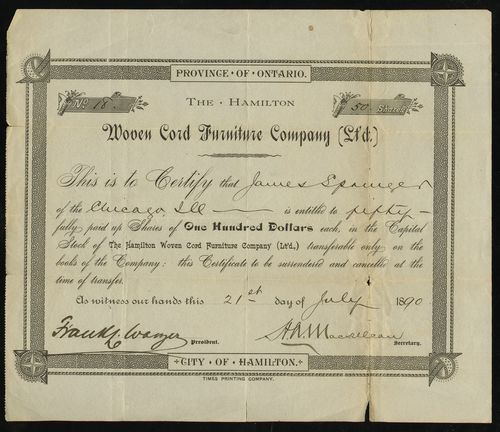 PROVINCE • OF • ONTARIO.
No 18. 50 Shares
THE • HAMILTON
Woven Cord Furniture Company (Lt'd.)
This is to Certify that James Spanner
of the Chicago Ill is entitled to fifty
fully paid up Shares of One Hundred Dollars each, in the Capital
Stock of The Hamilton Woven Cord Furniture Company (Lt'd.), transferable only on the
books of the Company: this Certificate to be surrendered and cancelled at the
time of transfer.
As witness our hands this 21st day of July 1890
Frank L Wanzer President. Secretary.
CITY • OF • HAMILTON.
TIMES PRINTING COMPANY.